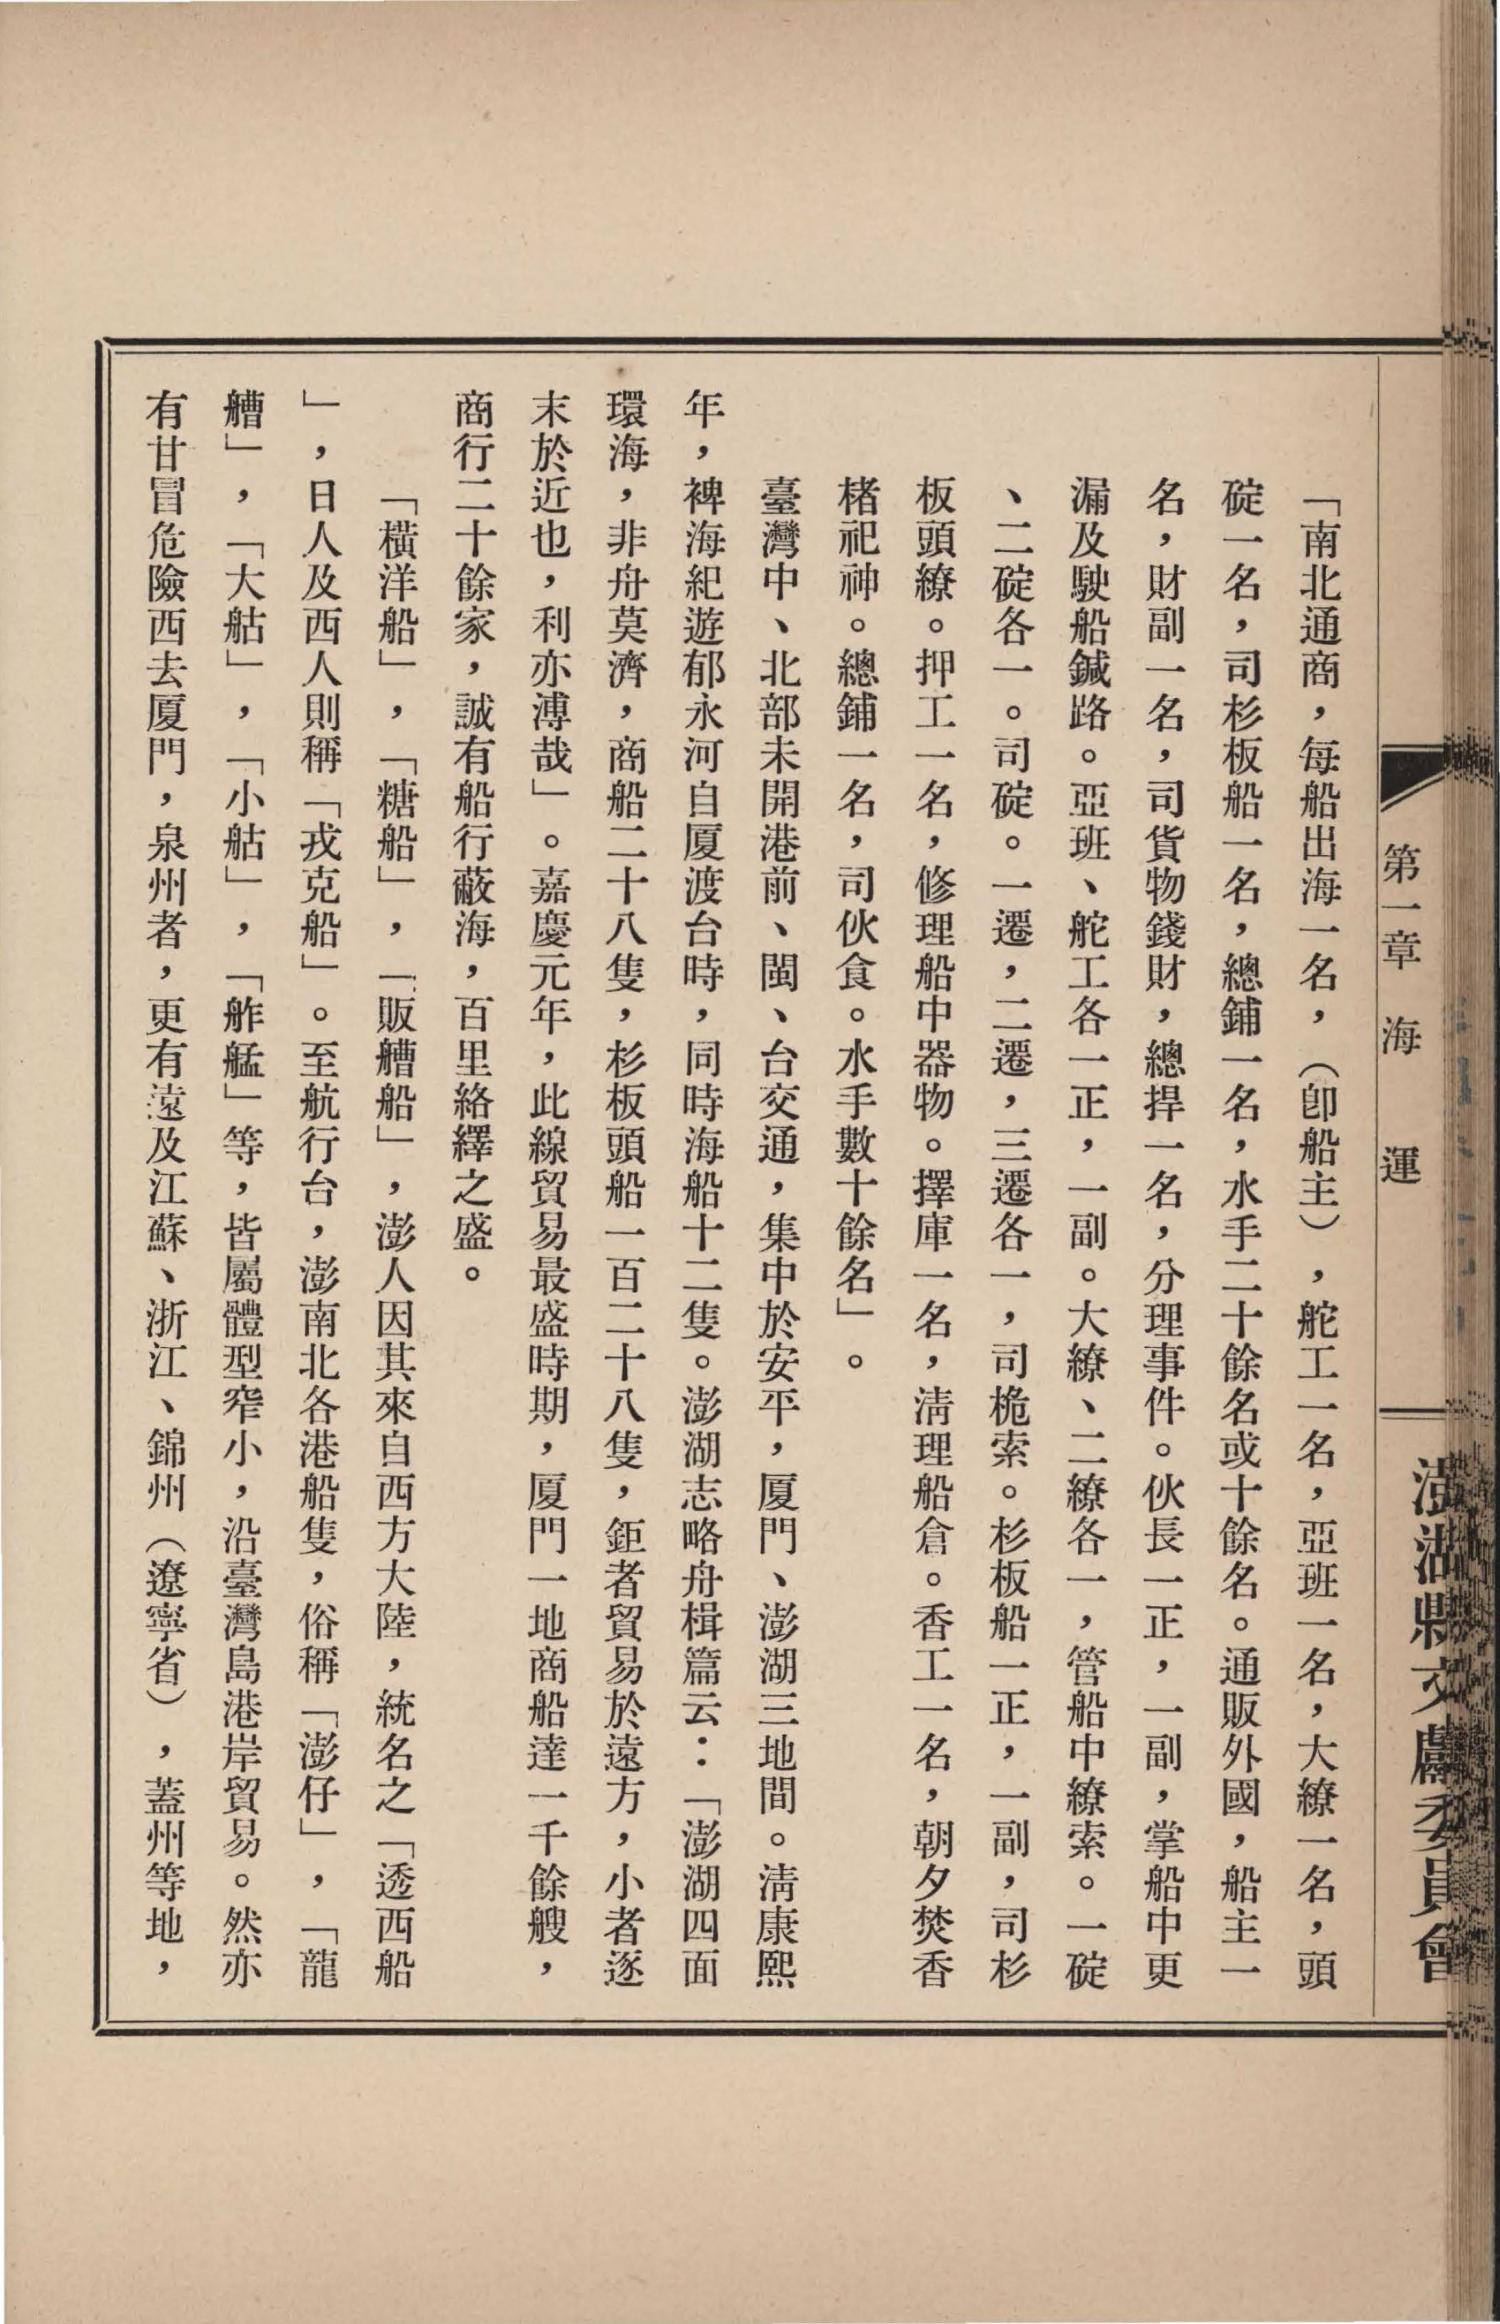 第一章 海 運
澎湖縣文獻委員會
「南北通商，每船出海一名，（卽船主），舵工一名，亞班一名，大繚一名，頭
碇一名，司杉板船一名，總鋪一名，水手二十餘名或十餘名。通販外國，船主一
名，財副一名，司貨物錢財，總捍一名，分理事件。伙長一正，一副，掌船中更
漏及駛船鍼路。亞班、舵工各一正，一副。大繚、二繚各一，管船中繚索。一碇
、二碇各一。司碇。一遷，二遷，三遷各一，司桅索。杉板船一正，一副，司杉
板頭繚。押工一名，修理船中器物。擇庫一名，淸理船倉。香工一名，朝夕焚香
楮祀神。總鋪一名，司伙食。水手數十餘名」。
臺灣中、北部未開港前、閩、台交通，集中於安平，厦門、澎湖三地間。淸康熙
年，裨海紀遊郁永河自厦渡台時，同時海船十二隻。澎湖志略舟楫篇云：「澎湖四面
環海，非舟莫濟，商船二十八隻，杉板頭船一百二十八隻，鉅者貿易於遠方，小者逐
末於近也，利亦溥哉」。嘉慶元年，此線貿易最盛時期，厦門一地商船達一千餘艘，
商行二十餘家，誠有船行蔽海，百里絡繹之盛。
「橫洋船」，「糖船」，「販艚船」，澎人因其來自西方大陸，統名之「透西船
」，日人及西人則稱「戎克船」。至航行台，澎南北各港船隻，俗稱「澎仔」，「龍
艚」，「大䑩」，「小䑩」，「舴艋」等，皆屬體型窄小，沿臺灣島港岸貿易。然亦
有甘冒危險西去厦門，泉州者，更有遠及江蘇、浙江、錦州（遼寧省），蓋州等地，